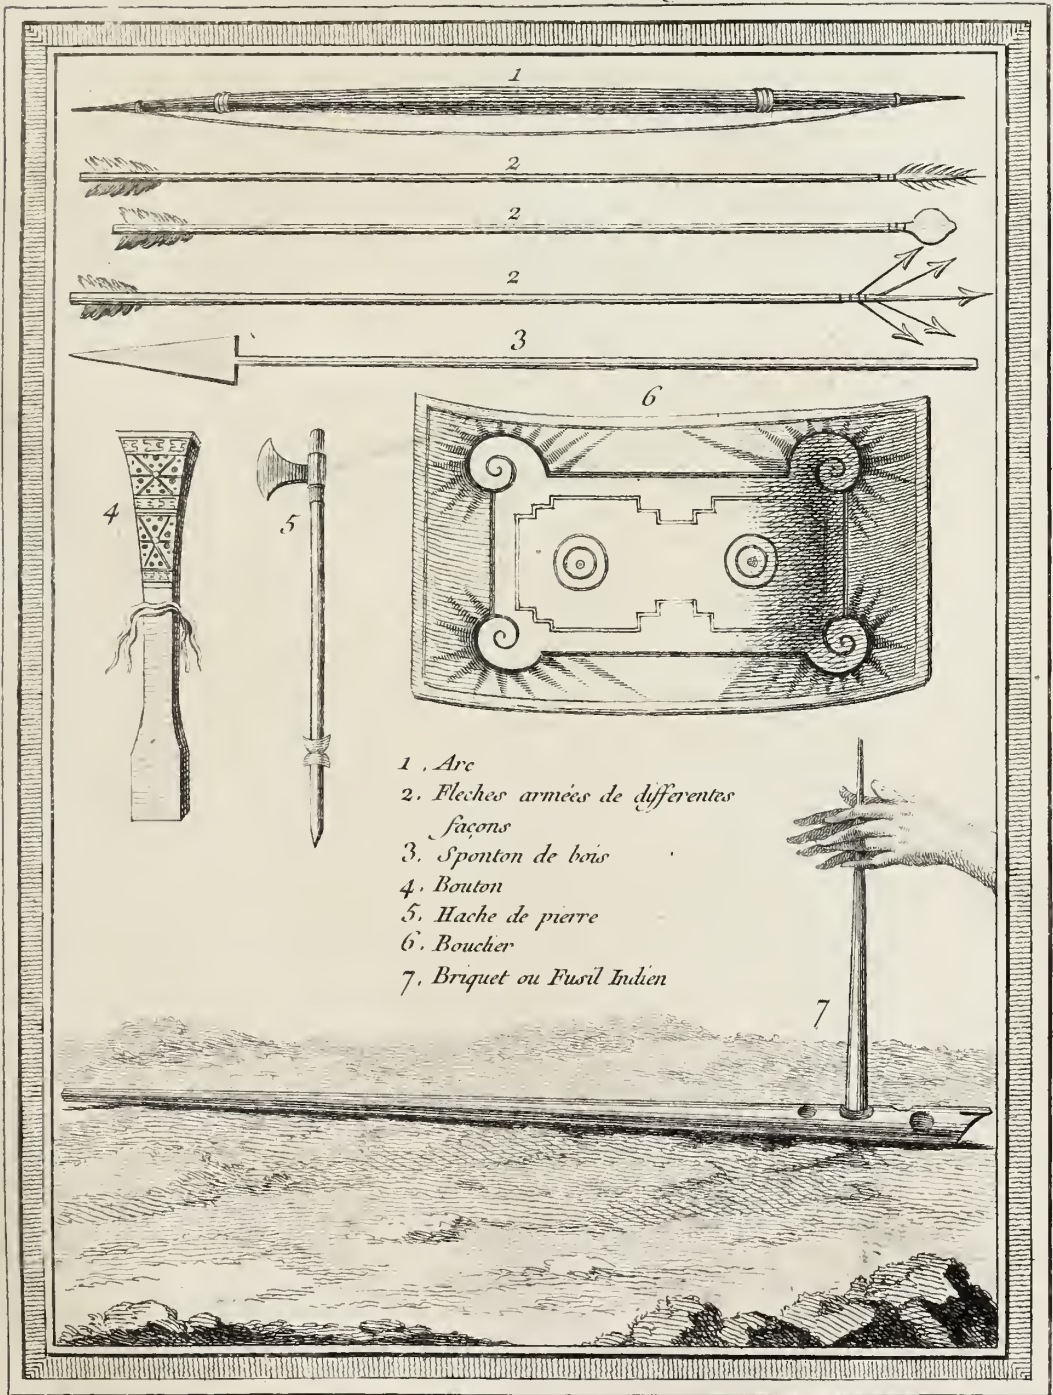 1
2
2
2
3
6
4
5
1. Arc
2. Fleches armées de differentes
façons
3. Sponton de bois
4. Bouton
5. Hache de pierre
6. Boucher
7. Briquet ou Fusil Indien
7